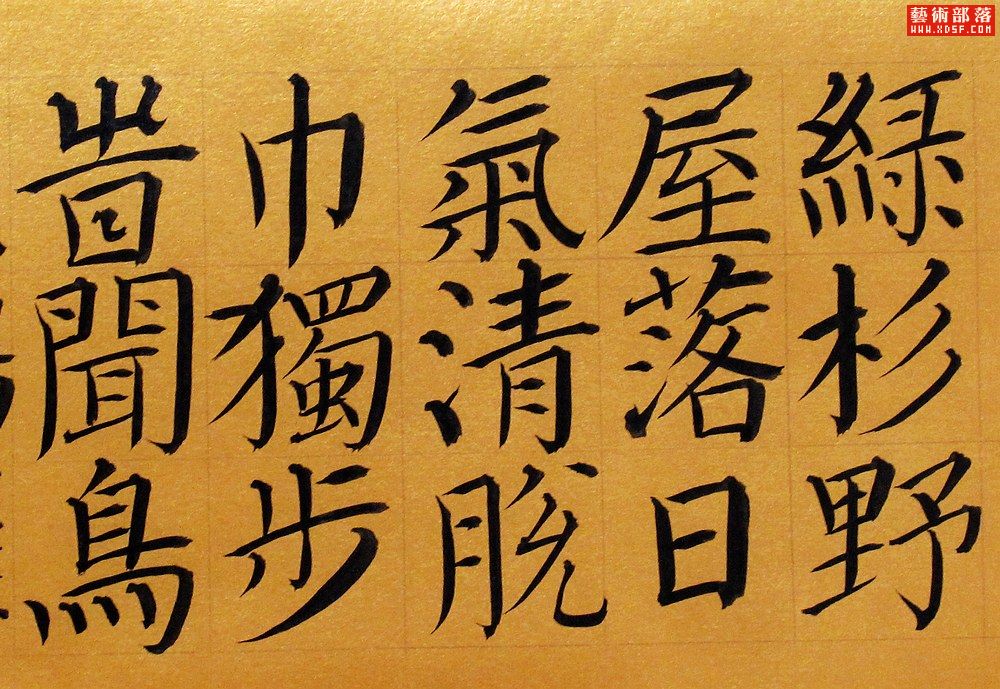 藝術部落
WWW.XDSF.COM
綠杉野
屋落日
氣清脫
巾獨步
時聞鳥